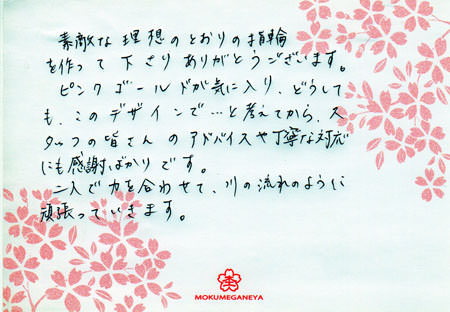 素敵な理想のとおりの指輪
を作って下さりありがとうございます。
ピンクゴールドが気に入り、どうして
も、このデザインで…と考えてから、ス
タッフの皆さんのアドバイスや丁寧な対応
にも感謝ばかりです。
二人で力を合わせて、川の流れのように
頑張っていきます。
MOKUMEGANEYA